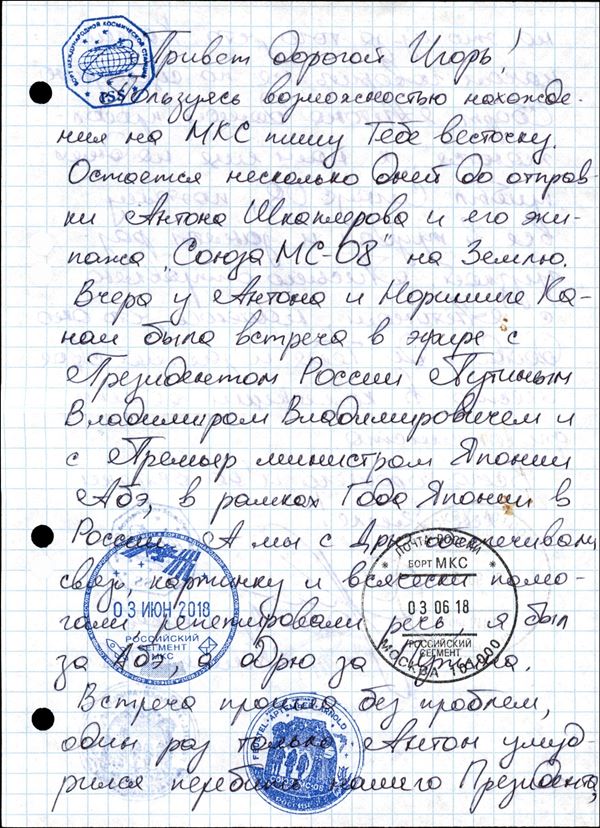 БОРТ МЕЖДУНАРОДНОЙ КОСМИЧЕСКОЙ СТАНЦИИ
ISS
Привет дорогой Игорь!
Пользуясь возможностью нахожде-
ния на МКС пишу Тебе весточку.
Остается несколько дней до отправ-
ки Антона Шкаплерова и его эки-
пажа "Союза МС-08" на Землю.
Вчера у Антона и Норишиге Ка-
наи была встреча в эфире с
Президентом России Путиным
Владимиром Владимировичем и
с Премьер министром Японии
Абэ, в рамках Года Японии в
России. А мы с Дрю обеспечивали
связь, картинку и всячески помо-
гали репетировали речь, я был
за Абэ, а Дрю за Путина.
Встреча прошла без проблем,
один раз только Антон умуд-
рился перебить нашего Президента,
03 ИЮН 2018
РОССИЙСКИЙ
СЕГМЕНТ
МКС
ПОЧТА РОССИИ
БОРТ МКС
03 06 18
РОССИЙСКИЙ
СЕГМЕНТ
МОСКВА 101000